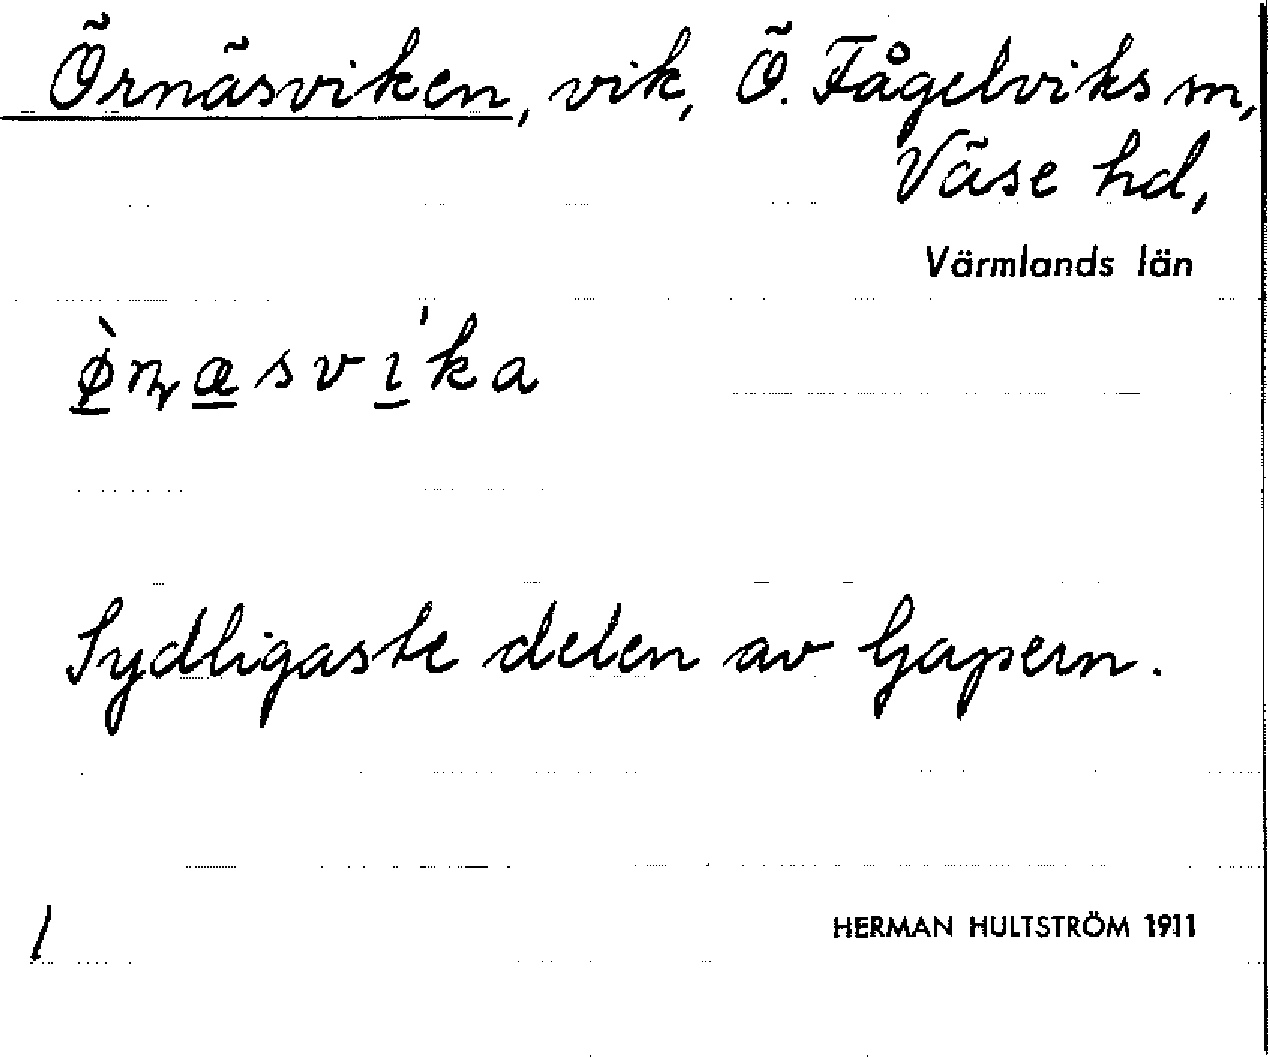 Örnäsviken, vik, Ö. Fågelviks sn,
Väse hd,
Värmlands län
ø̠̀ɳæ̠svɩ̠'ka
Sydligaste delen av Gapern.
1
HERMAN HULTSTRÖM 1911